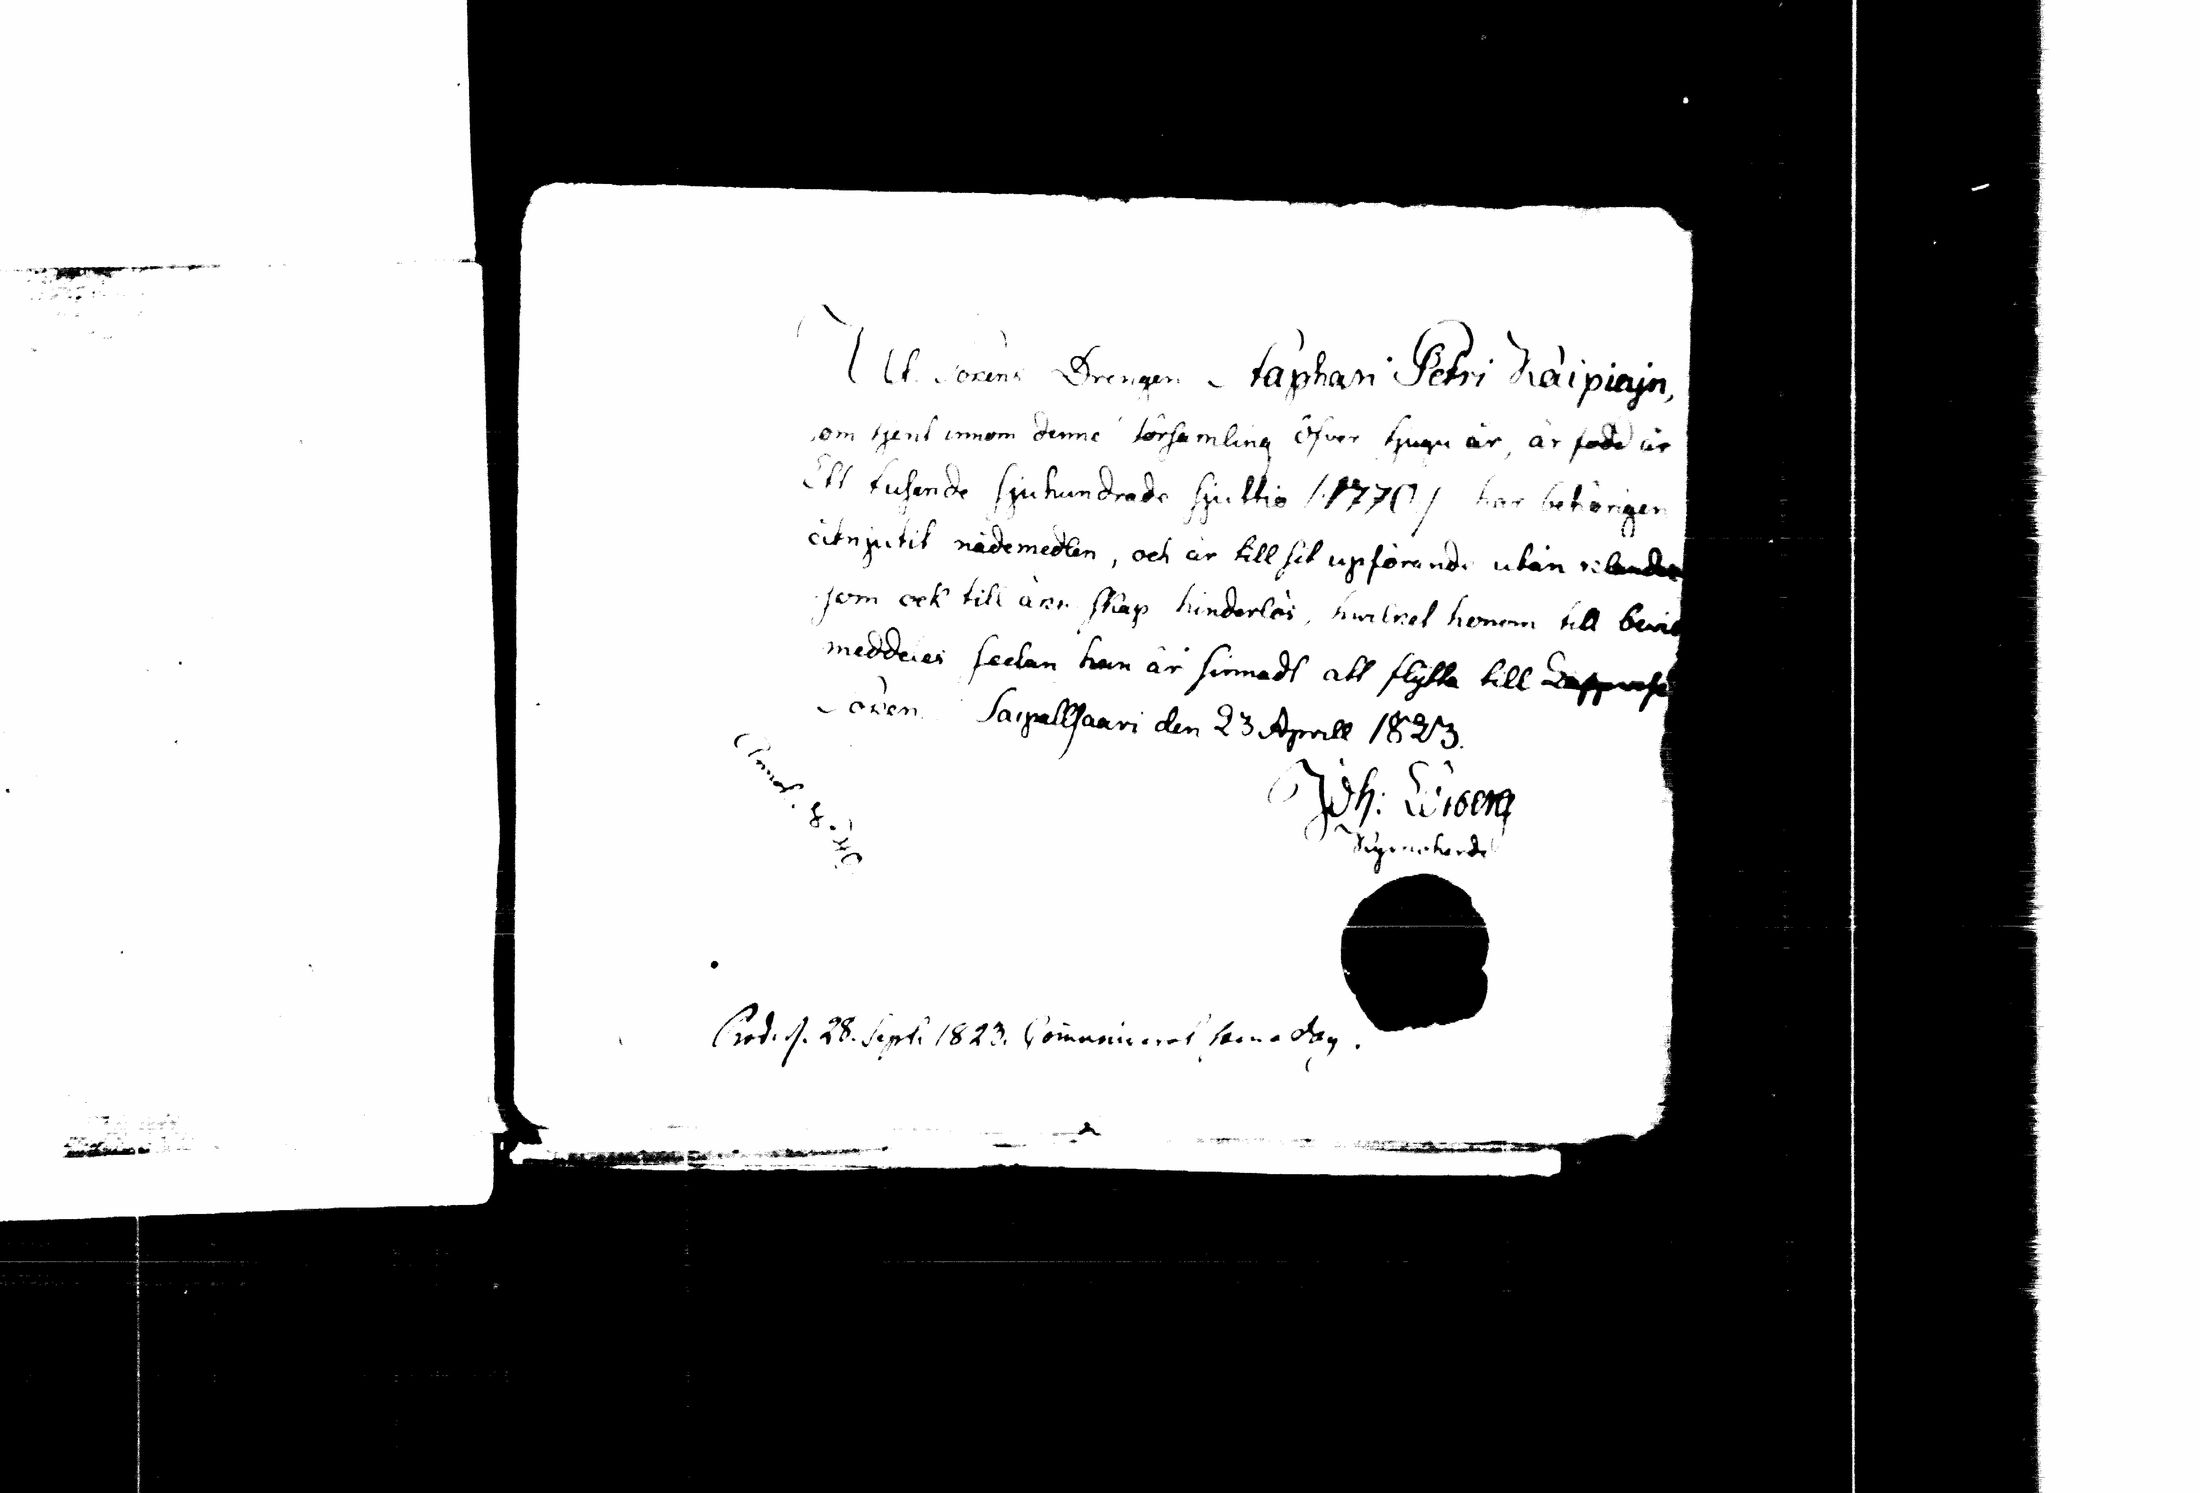 Ut. Sokens Drengen Staphan Petri Kaipiajn,
som tjent innom denne församling öfver tjugu år, är född år
Ett tusende sjuhundrade sjuttio /:1770:/ har behörigen
åtnjutit nådemedlen, och är till sit upförande utan
som ock till äcktenskap hinderlös, hwilket honom till bevis
meddeles seelan han är sinnadt att flytta till
Soken Saipallsaari den 23 Aprill 1823.
Joh: Wiberg
Kyrckoherde
Annot.
Prod. d. 28. Sept. 1823. Communicerat samma dag.